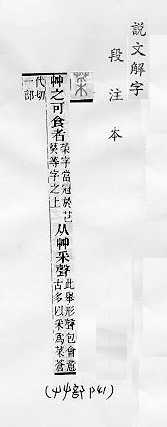 說文解字
段注本
菜
艸之可食者菜字當冠於芑葵等字之上从艸采聲此舉形聲包會意古多以采爲菜蒼
代切
一部
(艸部 P41)